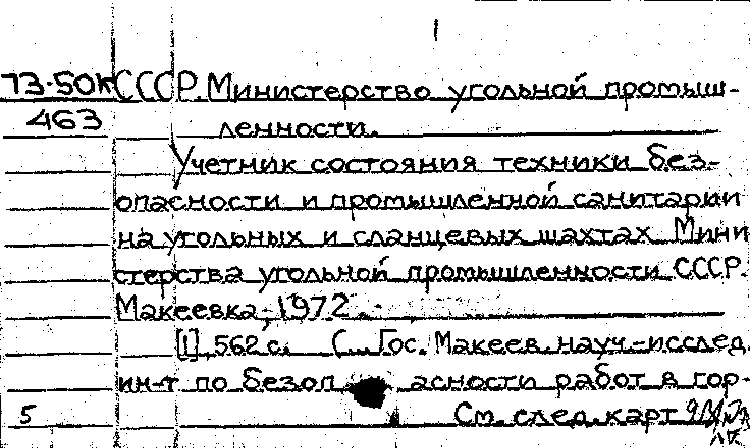 73-50к СССР. Министерство угольной промыш-
463 ленности.
Учетник состояния техники без-
опасности и промышленной санитарии
на угольных и сланцевых шахтах Мини
стерства угольной промышленности СССР.
Макеевка, 1972.
[1], 562 с. (... Гос. Макеев. науч.-исслед.
ин-т по безоп асности работ в гор-
5 См. след. карт